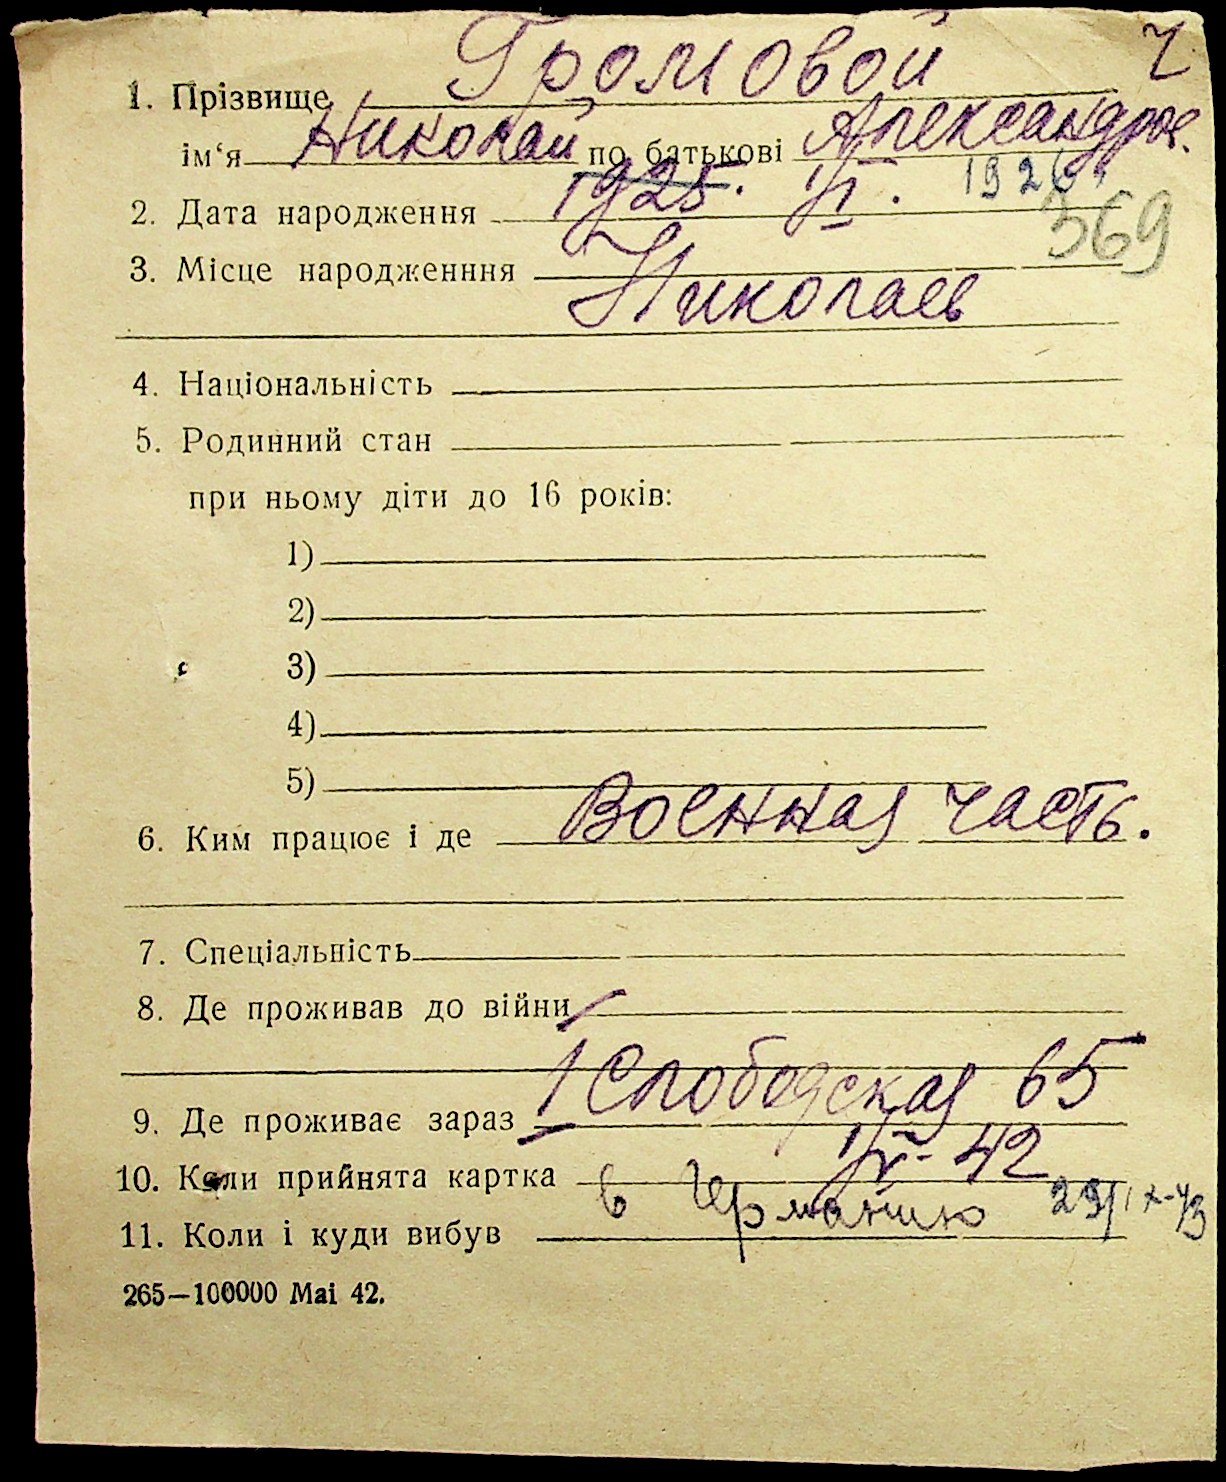 Громовой Ч
1. Прізвище
Николай Александров.
ім‘я по батькові
1925. 1926
2. Дата народження
369
3. Місце народженння
Николаев
4. Національність
5. Родинний стан
при ньому діти до 16 років:
1)
2)
3)
4)
5)
Военная часть.
6. Ким працює і де
7. Спеціальність
8. Де проживав до війни
1 Слободская 65
9. Де проживає зараз
42
10. Коли прийнята картка
в Германию 29/IX-43
11. Коли і куди вибув
265—100000 Mai 42.